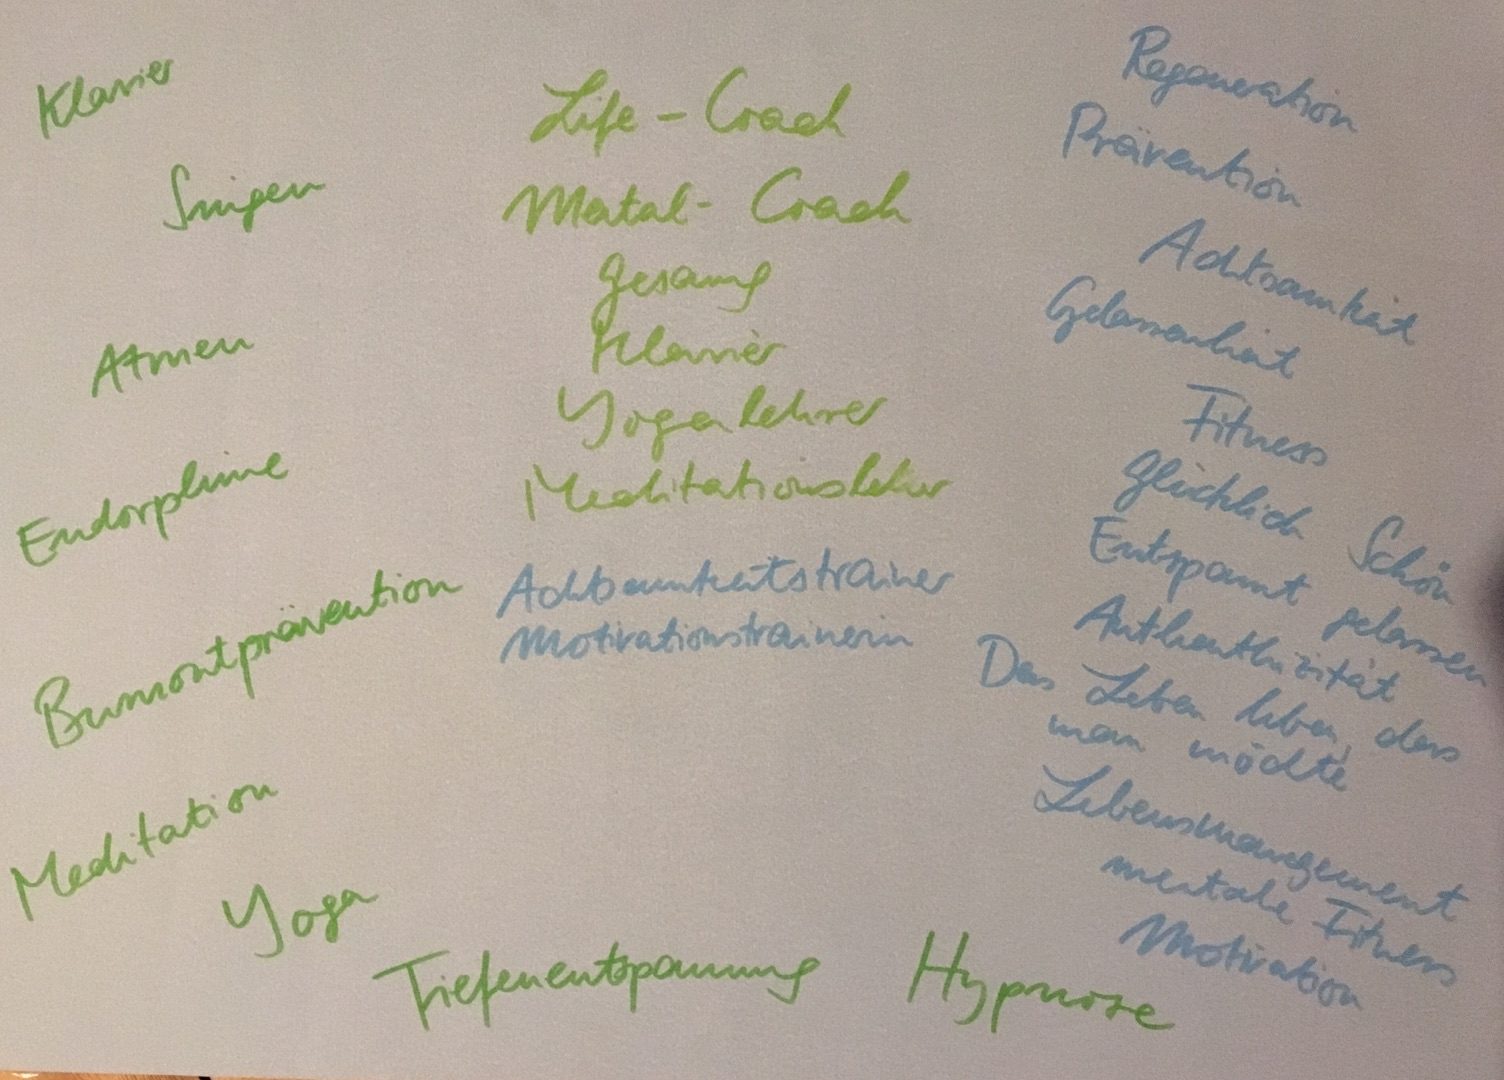 Klavier
Singen
Atmen
Endorphine
Burnoutprävention
Meditation
Yoga
Tiefenentspannung
Hypnose
Life - Coach
Mental - Coach
Gesang
Klavier
Yogalehrer
Meditationslehrer
Achtsamkeitstrainer
Motivationstrainerin
Regeneration
Prävention
Achtsamkeit
Gelassenheit
Fitness
glücklich Schön
Entspannt gelassen
Authenthizität
Das Leben leben, das
man möchte
Lebensmangement
mentale Fitness
Motivation